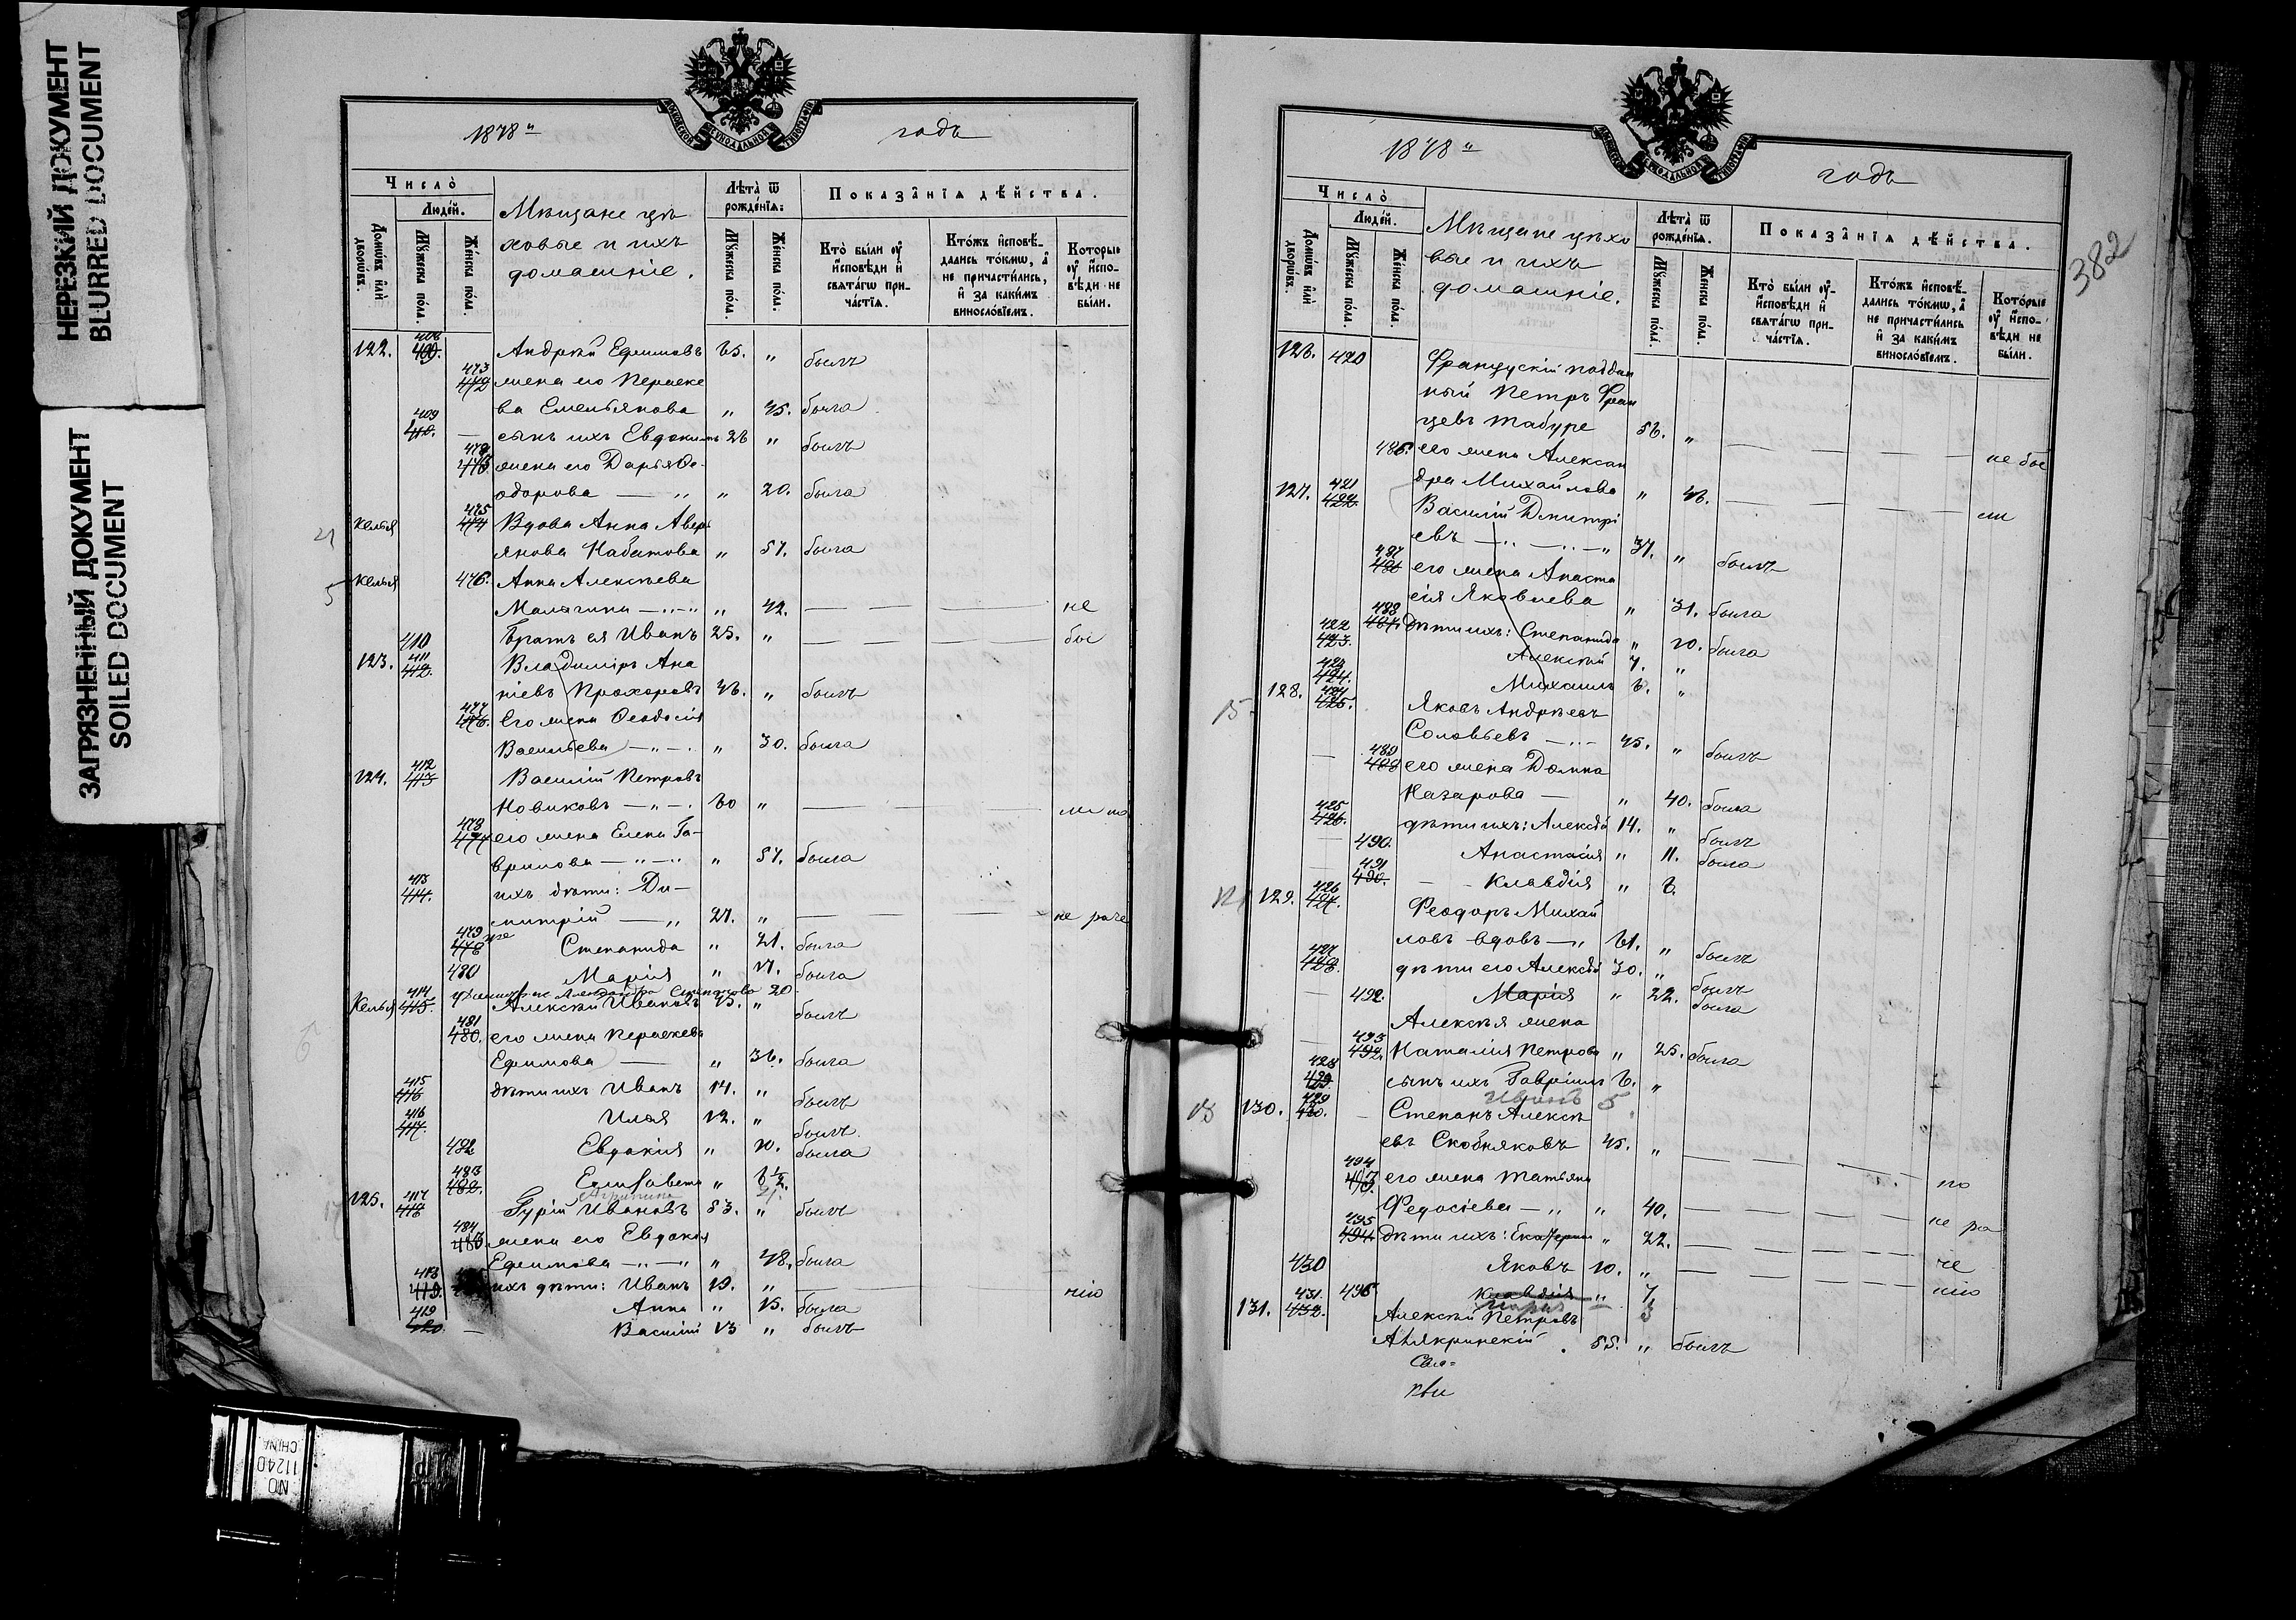 НЕРЕЗКИЙ ДОКУМЕНТ
BLURRED DOCUMENT
ЗАГРЯЗНЕННЫЙ ДОКУМЕНТ
SOILED DOCUMENT
1878 годъ
Число̀
Людей.
Домѡвъ и҆лѝ дворѡвъ.
Мꙋ́жеска по́ла.
Же́нска по́ла.
Мѣщане цѣ
ховые и ихъ
домашніе.
Лѣта̀ ѿ рожде́нїѧ:
Мꙋ́жеска по́ла.
Же́нска по́ла.
Показа̑нїѧ дѣ́йства.
Кто̀ бы́ли ᲂу҆ и҆сповѣ́ди и҆ свѧта́гѡ при-ча́стїѧ.
Кто́жъ и҆сповѣ́-дались то́кмѡ, а҆ не причасти́лись, и҆ за каки́мъ винослові́емъ.
Которые ᲂу҆ и҆спо-вѣ́ди не бы́ли.
122. 408 409. Андрей Ефимовъ 65. " былъ
473 472 жена его Параске
ва Емельянова " 45. была
409 410. — сынъ ихъ Евдокимъ 26 " былъ
473. жена его Дарья Ѳе-
одорова — " " 20. была
Келья 475 474 Вдова Анна Авер
янова Набатова " 57. была
Келья 476. Анна Алексѣева
Малягина " 42. — не
410 Братъ ея Иванъ 25. " — бы
123. 411 412. Владиміръ Ана
ніевъ Прохоровъ 46. " былъ
477 476. Его жена Ѳеодосія
Васильева " 30. была
124. 412 413 Василій Петровъ
Новиковъ 60 " —
478 477 его жена Елена Га-
врилова " 57. была
413 414. ихъ дѣти: Ди-
митрій — " 27. " — не раче
479 478 Степанида " 21. была
480 Марія " 17. была
20
Келья 414 415. Алексѣй Ивановъ 45. " былъ
481 480. его жена Параскева
Ефимова — " 36. была
415 416 дѣти ихъ Иванъ 14. " былъ
416 417. Илья 12. " былъ.
482 Евдокія " 10. была
483 482. Елисавета " 6½.
125. 417 418 Гурій Ивановъ 53. " былъ
484 483 жена его Евдокія
Ефимова " 48. была
418 419. ихъ дѣти: Иванъ 19. " — нію
Анна " 15. была
419 420. — Василій 13 " былъ
1878 годъ
382
Число̀
Людей.
Домѡвъ и҆лѝ дворѡвъ.
Мꙋ́жеска по́ла.
Же́нска по́ла.
Мѣщане цѣхо
вые и ихъ
домашніе.
Лѣта̀ ѿ рожде́нїѧ.
Мꙋ́жеска по́ла.
Же́нска по́ла.
Показа̑нїѧ дѣ́йства.
Кто̀ бы́ли ᲂу҆-и҆сповѣ́ди и҆ свѧта́гѡ при-ча́стїѧ.
Кто́жъ и҆сповѣ́-дались то́кмѡ, а҆ не причасти́лись и҆ за каки́мъ винослові́емъ.
Которые ᲂу҆ и҆спо-вѣ́ди не бы́ли.
126. 420 Французскій поддан
ный Петръ Фран
цевъ Табуре 56. " —
486. его жена Алексан не бы
дра Михайлова " 46. —
127. 421 422. Василій Дмитрі ли
евъ 37. " былъ
487 486 его жена Анаста
сія Яковлева " 31. была
488 487. дѣти ихъ: Степанида " 10. была
422 423. Алексѣй 7. "
423 424. Михаилъ 6. "
128. 424 425. Яковъ Андреевъ
Соловьевъ 45. " былъ
489 488 его жена Домна
Назарова — " 40. была
425 426. дѣти ихъ: Алексѣй 14. " былъ
490. Анастасія " 11. была
491 490. Клавдія " 6.
129. 426 427. Ѳеодоръ Михай
ловъ вдовъ — " 61. " былъ
427 428. дѣти его Алексѣй 30. " былъ
492. Марія " 22. была
Алексѣя жена
493 492. Наталія Петрова " 25. была
428 429. сынъ ихъ Гавріилъ 6. "
Иванъ 5
130. 429 430. Степанъ Алексѣ
евъ Скобняковъ 45. " —
494 493. его жена Татьяна по
Федосіева — " " 40. —
495 494. дѣти ихъ: Екатерина " 22. — не ра
430 Яковъ 10. " — че
496 Клавдія " 7 нію
131. 431. 432. Алексѣй Петровъ 3
55. " былъ
NO 11240
CHINA